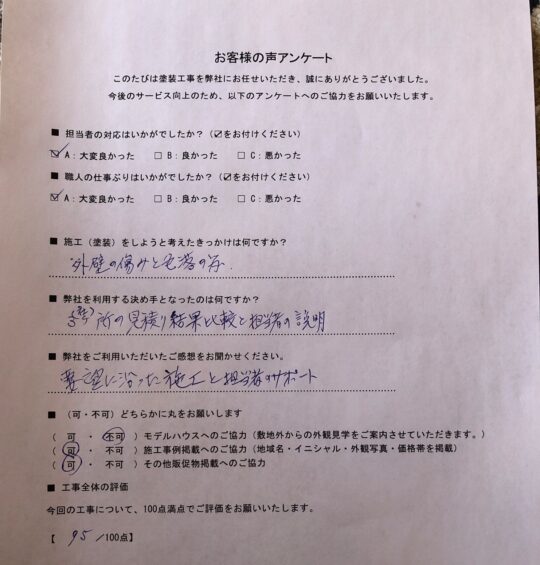 お客様の声アンケート
このたびは塗装工事を弊社にお任せいただき、誠にありがとうございました。
今後のサービス向上のため、以下のアンケートへのご協力をお願いいたします。
■ 担当者の対応はいかがでしたか?(☑をお付けください)
☑A:大変良かった □B:良かった □C:悪かった
■ 職人の仕事ぶりはいかがでしたか?(☑をお付けください)
☑A:大変良かった □B:良かった □C:悪かった
■ 施工(塗装)をしようと考えたきっかけは何ですか?
外壁の傷みと色落の為.
■ 弊社を利用する決め手となったのは何ですか?
所の見積り結果比較と担当者の説明
■ 弊社をご利用いただいたご感想をお聞かせください。
要望に沿った施工と担当者のサポート
■ (可・不可)どちらかに丸をお願いします
( 可 ・ 不可 )モデルハウスへのご協力(敷地外からの外観見学をご案内させていただきます。)
( 可 ・ 不可 )施工事例掲載へのご協力(地域名・イニシャル・外観写真・価格帯を掲載)
( 可 ・ 不可 )その他販促物掲載へのご協力
■ 工事全体の評価
今回の工事について、100点満点でご評価をお願いいたします。
【 95 /100点】